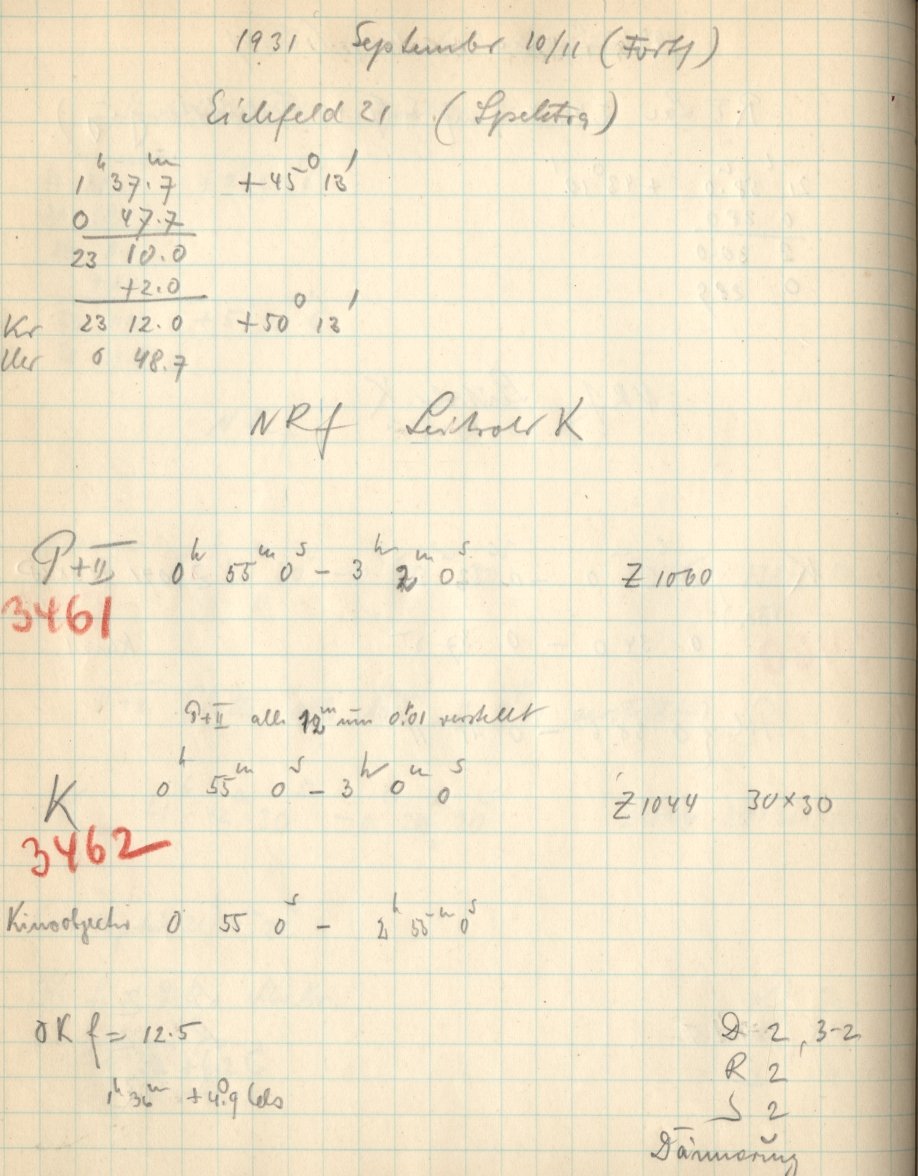 1931 September 10/11 (Forts)
Eichfeld 21 (Spektra)
1ʰ 37.7ᵐ +45⁰ 13'
0 47.7
23 10.0
+2.0
Kr 23 12.0 +50⁰ 13'
Uhr 0 48.7
NRf Leitrohr K
P+II 0ʰ 55ᵐ 0ˢ – 3ʰ 2ᵐ 0ˢ Z 1060
3461
P+II alle 12ᵐ um 0.01 verstellt
K 0ʰ 55ᵐ 0ˢ – 3ʰ 0ᵐ 0ˢ Z 1044 30×30
3462
Kinoobjectiv 0 55 0ˢ – 2ʰ 55ᵐ 0ˢ
OK f = 12.5 D 2, 3-2
1ʰ 36ᵐ +4.9 Cels R 2
S 2
Dämmerung